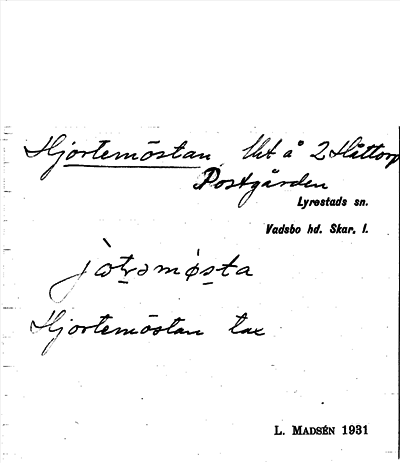 Hjortemöstan, lht å 2 Håttorp
Postgården
Lyrestads sn.
Vadsbo hd. Skar. l.
Hjortemöstan tax
L. MADSÉN 1931